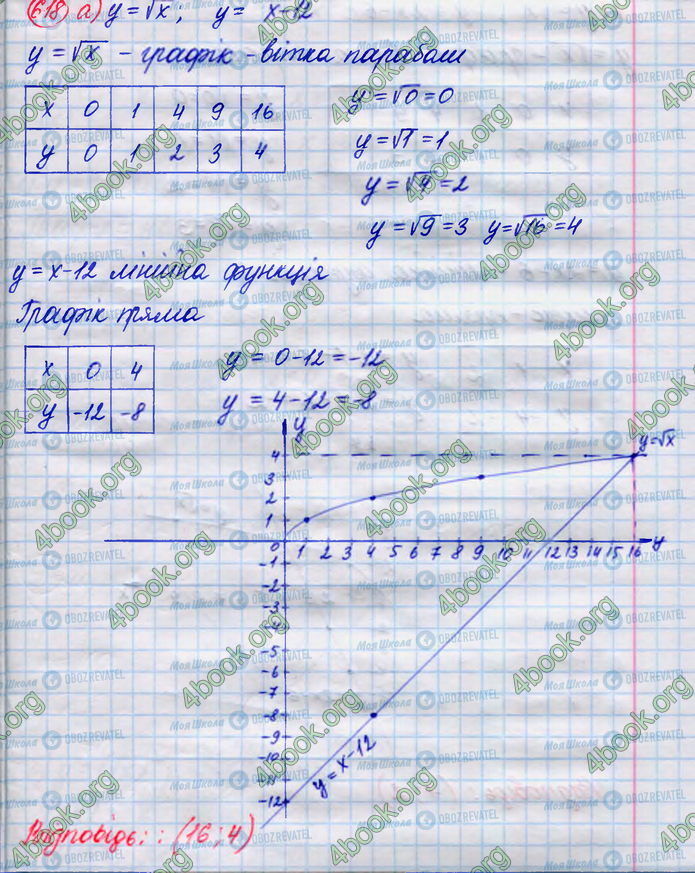 618 а) y = √x ; y = x-12
y = √x - графік - вітка параболи
x 0 1 4 9 16
y 0 1 2 3 4
y = √0 = 0
y = √1 = 1
y = √4 = 2
y = √9 = 3 y = √16 = 4
y = x-12 лінійна функція
Графік пряма
x 0 4
y -12 -8
y = 0-12 = -12
y = 4-12 = -8
y
y=√x
4
3
2
1
0 1 2 3 4 5 6 7 8 9 10 11 12 13 14 15 16 y
-1
-2
-3
-4
-5
-6
-7
-8
-9
-10
-11
-12
y = x-12
Відповідь: : (16 ; 4)
4book.org
МояШкола OBOZREVATEL